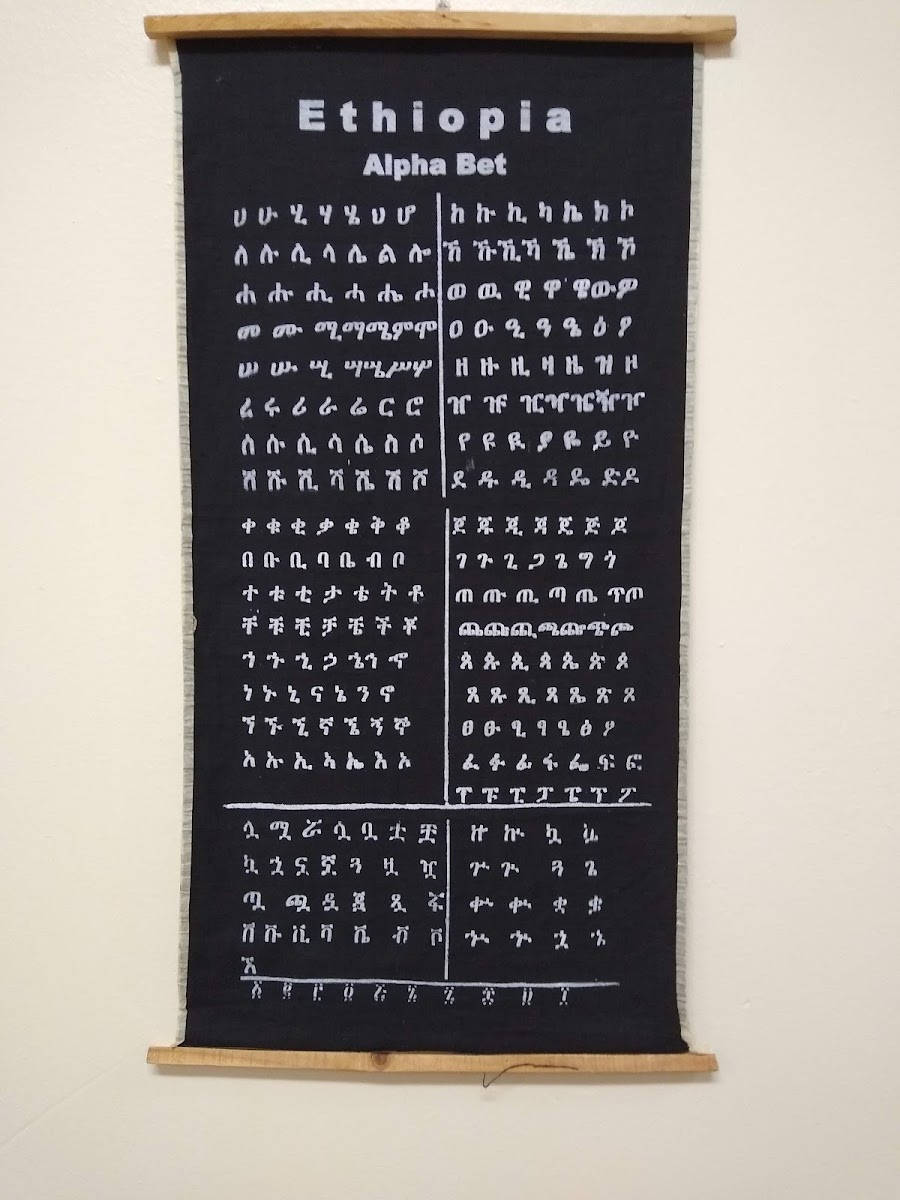 Ethiopia
Alpha Bet
ሀ ሁ ሂ ሃ ሄ ህ ሆ
ለ ሉ ሊ ላ ሌ ል ሎ
ሐ ሑ ሒ ሓ ሔ ሖ
መ ሙ ሚ ማ ሜ ም ሞ
ሠ ሡ ሢ ሣ ሤ ሥ ሦ
ረ ሩ ሪ ራ ሬ ር ሮ
ሰ ሱ ሲ ሳ ሴ ስ ሶ
ሸ ሹ ሺ ሻ ሼ ሽ ሾ
ከ ኩ ኪ ካ ኬ ክ ኮ
ኸ ኹ ኺ ኻ ኼ ኽ ኾ
ወ ዉ ዊ ዋ ዌ ው ዎ
ዐ ዑ ዒ ዓ ዔ ዕ ዖ
ዘ ዙ ዚ ዛ ዜ ዝ ዞ
ዠ ዡ ዢ ዣ ዤ ዥ ዦ
የ ዩ ዪ ያ ዬ ይ ዮ
ደ ዱ ዲ ዳ ዴ ድ ዶ
ቀ ቁ ቂ ቃ ቄ ቅ ቆ
በ ቡ ቢ ባ ቤ ብ ቦ
ተ ቱ ቲ ታ ቴ ት ቶ
ቸ ቹ ቺ ቻ ቼ ች ቾ
ኀ ኁ ኂ ኃ ኄ ኅ ኆ
ነ ኑ ኒ ና ኔ ን ኖ
ኘ ኙ ኚ ኛ ኜ ኝ ኞ
አ ኡ ኢ ኣ ኤ እ ኦ
ጀ ጁ ጂ ጃ ጄ ጅ ጆ
ገ ጉ ጊ ጋ ጌ ግ ጎ
ጠ ጡ ጢ ጣ ጤ ጥ ጦ
ጨ ጩ ጪ ጫ ጬ ጭ ጮ
ጰ ጱ ጲ ጳ ጴ ጵ ጶ
ጸ ጹ ጺ ጻ ጼ ጽ ጾ
ፀ ፁ ፂ ፃ ፄ ፅ ፆ
ፈ ፉ ፊ ፋ ፌ ፍ ፎ
ፐ ፑ ፒ ፓ ፔ ፕ ፖ
ሏ ሟ ሯ ሷ ቧ ቷ ቿ
ኳ ኋ ኗ ኟ ጓ ዟ ዧ
ጧ ጯ ዷ ጇ ጿ
ቨ ቩ ቪ ቫ ቬ ቭ ቮ
ኧ
ኵ ኳ ኴ
ጓ ጌ
ቍ ቋ
ኍ ኋ
፩ ፪ ፫ ፬ ፭ ፮ ፯ ፰ ፱ ፲